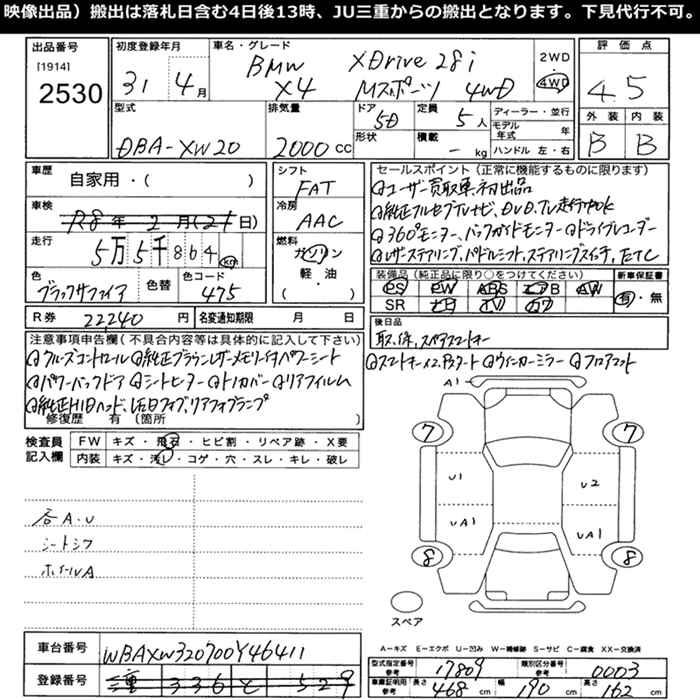 映像出品）搬出は落札日含む4日後13時、JU三重からの搬出となります。下見代行不可。
出品番号
[1914]
2530
初度登録年月
31 4月
車名・グレード
BMW XDrive 28i
X4 Mスポーツ 4WD
2WD
4WD
評価点
4.5
外装 内装
B B
型式
DBA-XW20
排気量
2000 cc
ドア
5D
形状
定員
5人
積載
- kg
ディーラー・並行
モデル年式 年
ハンドル 左・右
車歴
自家用・( )
車検
R8年 2月(21日)
走行
5万5千864 km
色
ブラックサファイア
色替
色コード
475
シフト
FAT
冷房
AAC
燃料
ガソリン
軽・油
( )
セールスポイント（正常に機能するものに限ります）
ユーザー買取車、初出品
純正フルセグTVナビ、DVD、TV走行中OK
360°モニター、バックガイドモニター ドライブレコーダー
レザーステアリング、パドルシフト、ステアリングスイッチ、ETC
装備品（純正品に限り○をつけてください）
PS PW ABS エアB AW
SR ナビ TV カワ
新車保証書
有・無
R券 22240円
名変通知期限 月 日
後日品
取、保、スペアスマートキー
注意事項申告欄（不具合内容等は具体的に記入して下さい）
クルーズコントロール 純正ブラウンレザーメモリー付パワーシート
スマートキー×2、Bカメラ ウインカーミラー フロアマット
パワーバックドア シートヒーター トノカバー リアフィルム
純正HIDヘッド、LEDフォグ、リアフォグランプ
修復歴 有（箇所 ）
検査員記入欄
FW キズ・飛石・ヒビ割・リペア跡・X要
内装 キズ・汚レ・コゲ・穴・スレ・キレ・破レ
各A・U
シートシワ
ホイールA
A1
7 7
U1 U2
UA1 UA1
8 8
スペア
A－キズ E－エクボ U－凹み W－補修跡 S－サビ C－腐食 XX－交換済
車台番号
WBAXW320700Y46411
登録番号
三重 336 と 529
型式指定番号 参考
17809
類別区分番号 参考
0003
車庫証明用 参考
長さ 468 cm 幅 190 cm 高さ 162 cm